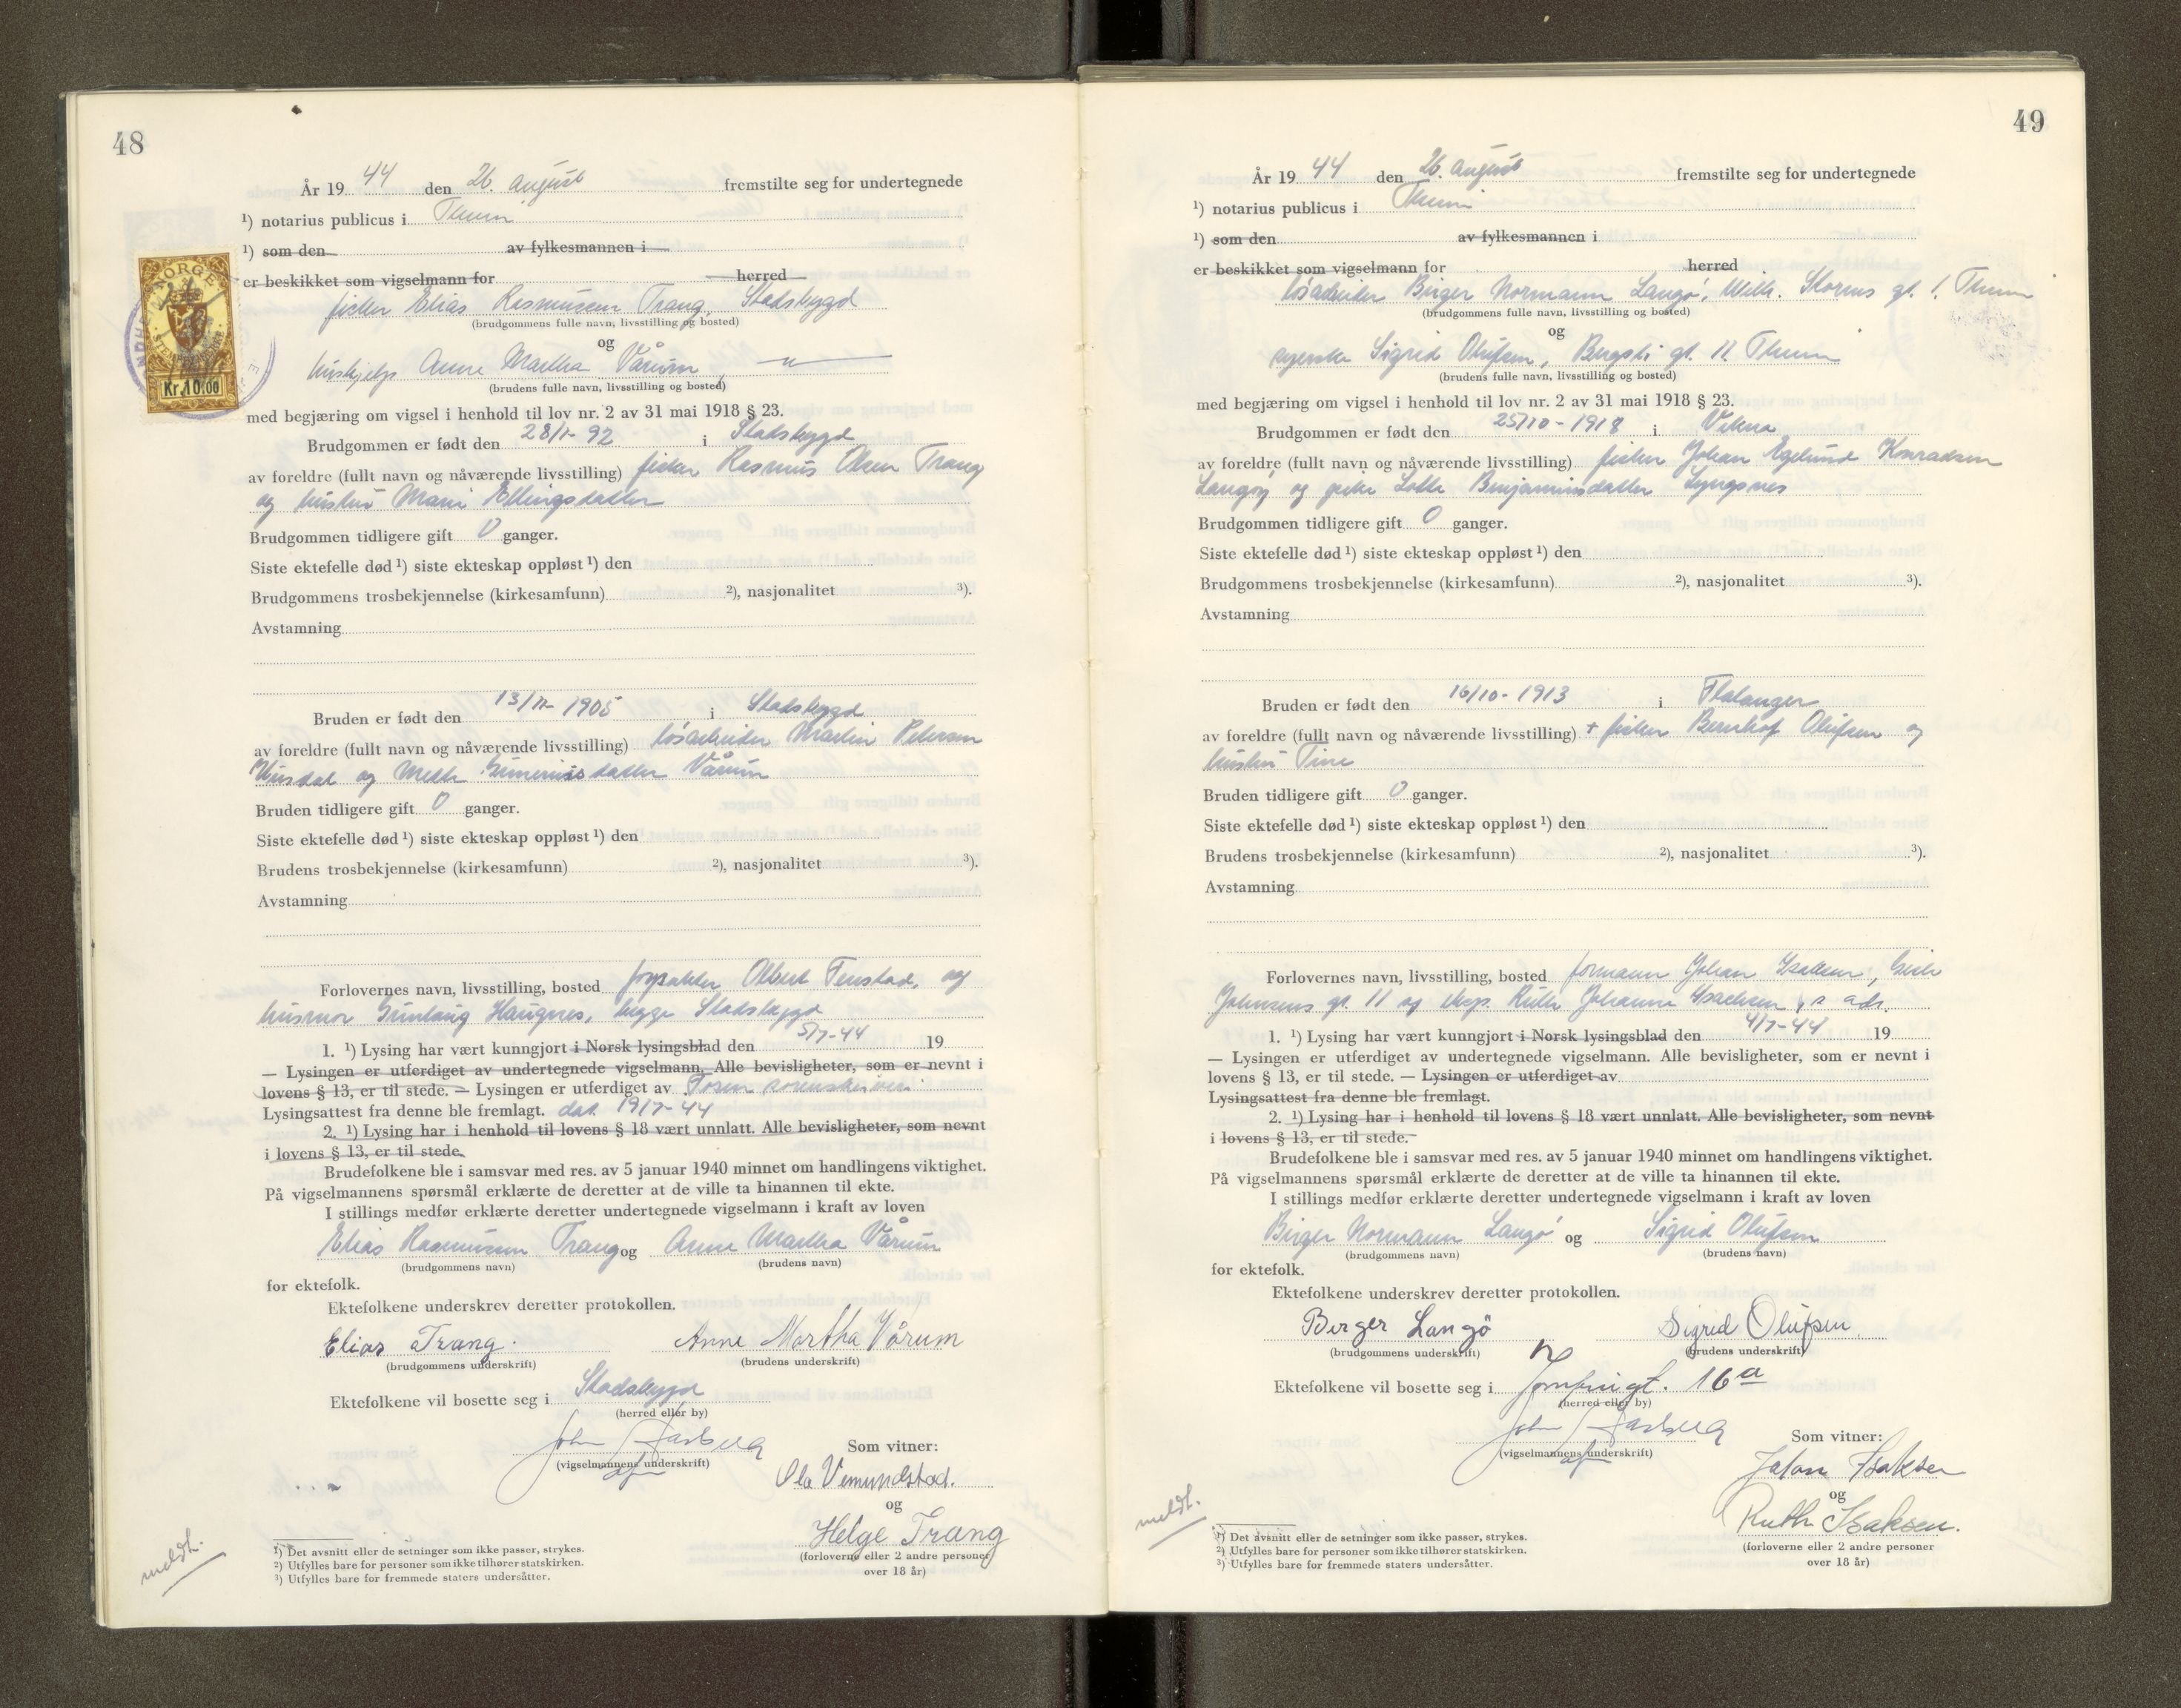 48
År 19 44 den 26. august fremstilte seg for undertegnede
¹) notarius publicus i
¹) som den av fylkesmannen i
er beskikket som vigselmann for herred
NORGE
Kr.10.00
fisker Elias Rasmussen Trang, Stadsbygd
(brudgommens fulle navn, livsstilling og bosted)
og
hushjelp Anne Martha Vårum, — " —
(brudens fulle navn, livsstilling og bosted)
med begjæring om vigsel i henhold til lov nr. 2 av 31 mai 1918 § 23.
Brudgommen er født den 92 i Stadsbygd
av foreldre (fullt navn og nåværende livsstilling) fisker Rasmus Olsen Trang
og hustru Marie Ellingsdatter
Brudgommen tidligere gift 0 ganger.
Siste ektefelle død ¹) siste ekteskap oppløst ¹) den
Brudgommens trosbekjennelse (kirkesamfunn) ²), nasjonalitet ³).
Avstamning
Bruden er født den 1905 i Stadsbygd
av foreldre (fullt navn og nåværende livsstilling) løsarbeider Martin Petersen
og Vårum
Bruden tidligere gift 0 ganger.
Siste ektefelle død ¹) siste ekteskap oppløst ¹) den
Brudens trosbekjennelse (kirkesamfunn) ²), nasjonalitet ³).
Avstamning
Forlovernes navn, livsstilling, bosted forpakter Albert Tenstad, og
husmor Gunlaug Haugnes, begge Stadsbygd
1. ¹) Lysing har vært kunngjort i Norsk lysingsblad den 5/7-44 19
— Lysingen er utferdiget av undertegnede vigselmann. Alle bevisligheter, som er nevnt i
lovens § 13, er til stede. — Lysingen er utferdiget av Fosen sorenskriveri.
Lysingsattest fra denne ble fremlagt. dat. 19/7-44
2. ¹) Lysing har i henhold til lovens § 18 vært unnlatt. Alle bevisligheter, som nevnt
i lovens § 13, er til stede.
Brudefolkene ble i samsvar med res. av 5 januar 1940 minnet om handlingens viktighet.
På vigselmannens spørsmål erklærte de deretter at de ville ta hinannen til ekte.
I stillings medfør erklærte deretter undertegnede vigselmann i kraft av loven
Elias Rasmussen Trang og Anne Martha Vårum
(brudgommens navn) (brudens navn)
for ektefolk.
Ektefolkene underskrev deretter protokollen.
Elias Trang. Anne Martha Vårum
(brudgommens underskrift) (brudens underskrift)
Ektefolkene vil bosette seg i Stadsbygd
(herred eller by)
John
(vigselmannens underskrift)
Som vitner:
Ola Vemundstad.
og
Helge Trang
(forloverne eller 2 andre personer
over 18 år)
meldt.
¹) Det avsnitt eller de setninger som ikke passer, strykes.
²) Utfylles bare for personer som ikke tilhører statskirken.
³) Utfylles bare for fremmede staters undersåtter.
49
År 19 44 den 26. august fremstilte seg for undertegnede
¹) notarius publicus i
¹) som den av fylkesmannen i
er beskikket som vigselmann for herred
løsarbeider Birger Normann Langø, Wilh. Storms gt. 1.
(brudgommens fulle navn, livsstilling og bosted)
og
syerske Sigrid Olufsen, Bergsli gt. 11
(brudens fulle navn, livsstilling og bosted)
med begjæring om vigsel i henhold til lov nr. 2 av 31 mai 1918 § 23.
Brudgommen er født den 25/10-1918 i Vikna
av foreldre (fullt navn og nåværende livsstilling) fisker Johan Egelund Konradsen
Langøy og pike Lotte Benjaminsdatter Lyngsnes
Brudgommen tidligere gift 0 ganger.
Siste ektefelle død ¹) siste ekteskap oppløst ¹) den
Brudgommens trosbekjennelse (kirkesamfunn) ²), nasjonalitet ³).
Avstamning
Bruden er født den 16/10-1913 i Flatanger
av foreldre (fullt navn og nåværende livsstilling) + fisker Bernhof Olufsen og
hustru Tine
Bruden tidligere gift 0 ganger.
Siste ektefelle død ¹) siste ekteskap oppløst ¹) den
Brudens trosbekjennelse (kirkesamfunn) ²), nasjonalitet ³).
Avstamning
Forlovernes navn, livsstilling, bosted formann Johan Isaksen,
Johnsens gt. 11 og eksp. Ruth Johanne Isachsen, s. adr.
1. ¹) Lysing har vært kunngjort i Norsk lysingsblad den 4/7-44 19
— Lysingen er utferdiget av undertegnede vigselmann. Alle bevisligheter, som er nevnt i
lovens § 13, er til stede. — Lysingen er utferdiget av
Lysingsattest fra denne ble fremlagt.
2. ¹) Lysing har i henhold til lovens § 18 vært unnlatt. Alle bevisligheter, som nevnt
i lovens § 13, er til stede.
Brudefolkene ble i samsvar med res. av 5 januar 1940 minnet om handlingens viktighet.
På vigselmannens spørsmål erklærte de deretter at de ville ta hinannen til ekte.
I stillings medfør erklærte deretter undertegnede vigselmann i kraft av loven
Birger Normann Langø og Sigrid Olufsen
(brudgommens navn) (brudens navn)
for ektefolk.
Ektefolkene underskrev deretter protokollen.
Birger Langø Sigrid Olufsen
(brudgommens underskrift) (brudens underskrift)
Ektefolkene vil bosette seg i Jomfrugt. 16 a
(herred eller by)
John
(vigselmannens underskrift)
Som vitner:
Johan Isaksen
og
Ruth Isaksen.
(forloverne eller 2 andre personer
over 18 år)
meldt.
¹) Det avsnitt eller de setninger som ikke passer, strykes.
²) Utfylles bare for personer som ikke tilhører statskirken.
³) Utfylles bare for fremmede staters undersåtter.